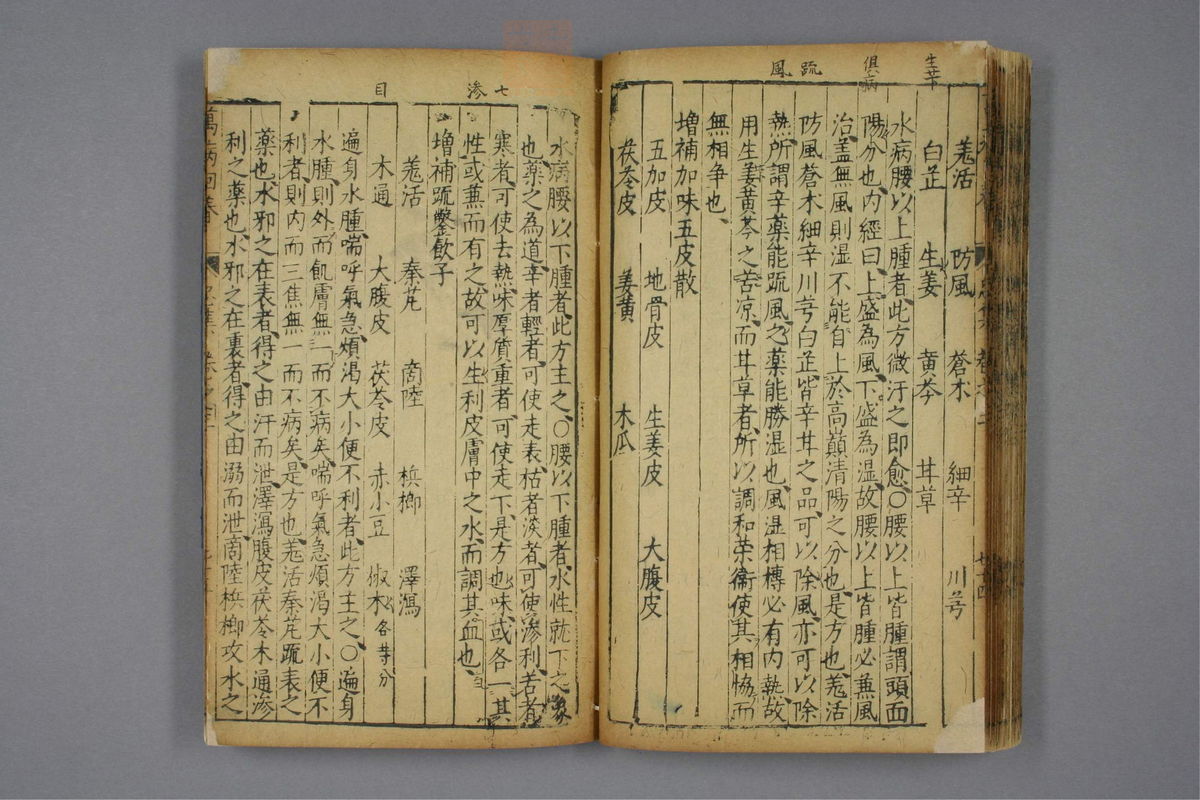 生芐
俱病
疏風
羗活　防風　蒼朮　細辛　川芎
白芷　生姜　黄芩　甘草
水病腰以上腫者此方微汗之即愈〇腰以上皆腫謂頭面
陽分也内經曰上盛為風下盛為湿故腰以上皆腫必蕪風
治盖無風則湿不能自上於高巔清陽之分也是方也羗活
防風蒼木細辛川芎白芷皆辛甘之品可以除風亦可以除
熱所謂辛藥能疏風之藥能勝湿也風湿相搏必有内熱故
用生姜黄芩之苦凉而甘草者所以調和荣衞使其相恊而
無相争也
増補加味五皮散
五加皮　地骨皮　生姜皮　大腹皮
茯苓皮　姜黄　木瓜
七
滲
目
水病腰以下腫者此方主之〇腰以下腫者水性就下之象
也藥之為道辛者輕者可使走表枯者淡者可使滲利苦者
寒者可使去熱味厚質重者可使走下是方也味或各一其
性或蕪而有之故可以生利皮膚中之水而調其血也
増補疏鑿飲子
羗活　秦芃　商陸　梹榔　澤瀉
木通　大腹皮　茯苓皮　赤小豆　椒木各等分
遍身水腫喘呼氣急煩渴大小便不利者此方主之〇遍身
水腫則外而飢膚無一而不病矣喘呼氣急煩渴大小便不
利者則内而三焦無一而不病矣是方也羗活秦芃疏表之
藥也水邪之在表者得之由汗而泄澤瀉腹皮茯苓木通滲
利之藥也水邪之在裏者得之由溺而泄商陸梹榔攻水之
萬病回春